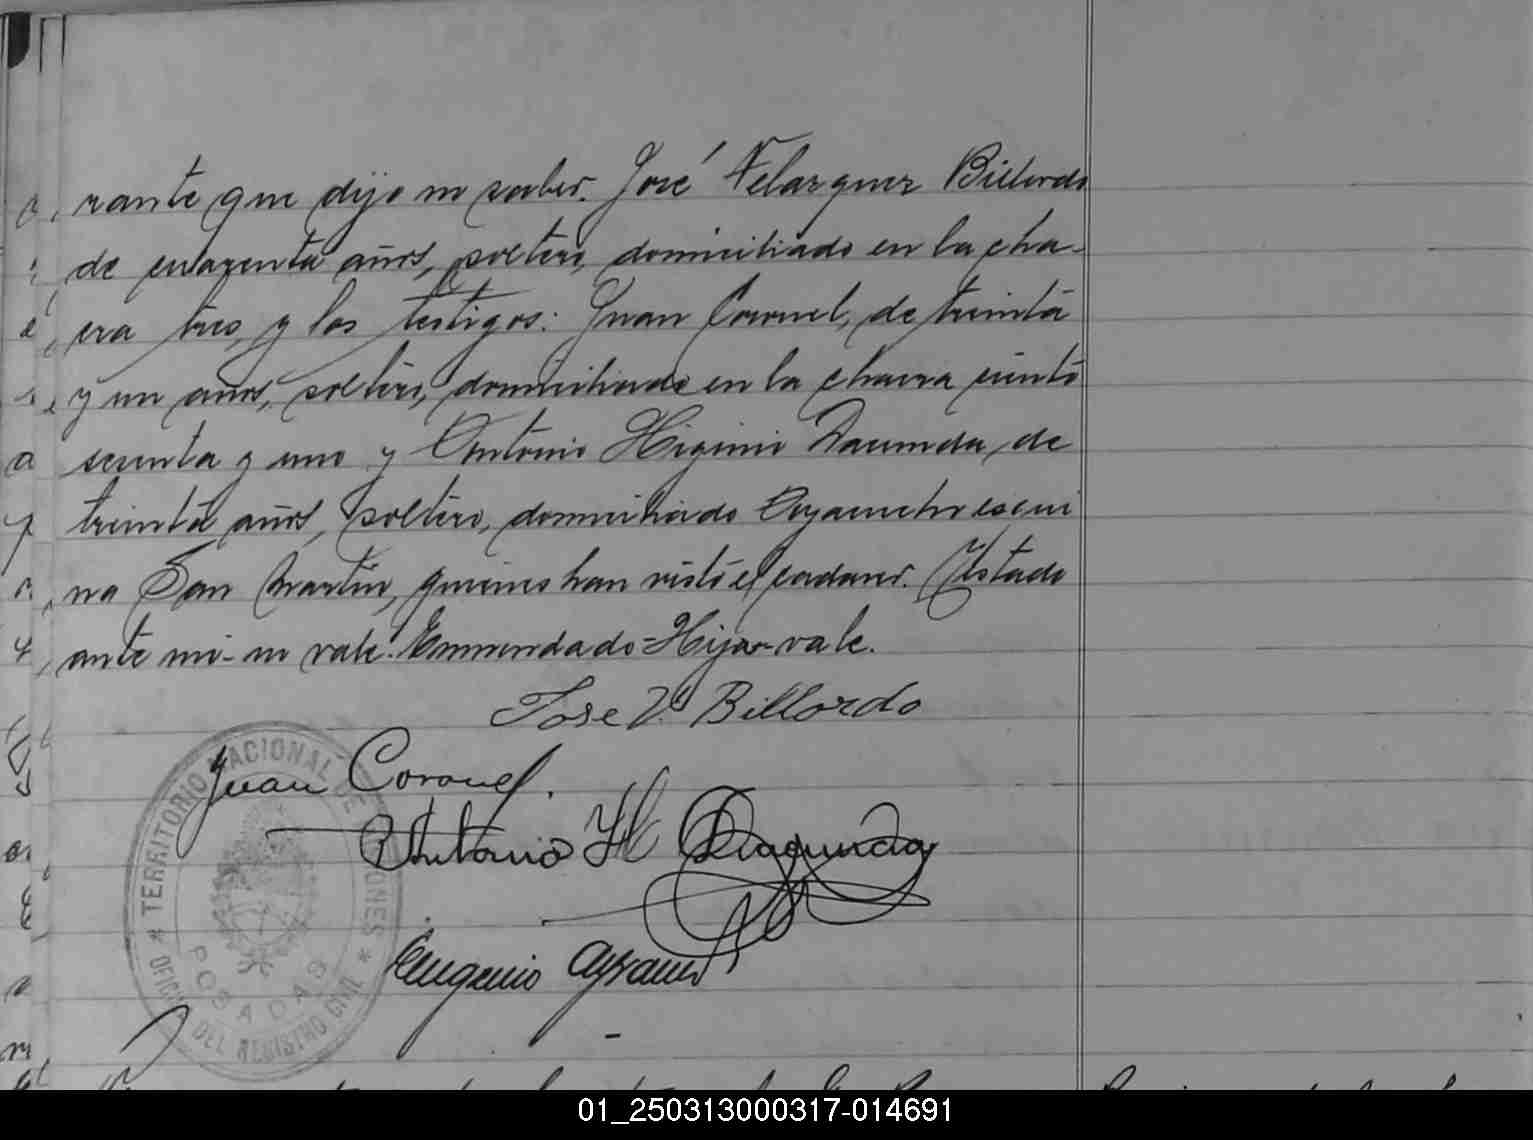 rante que dijo no saber. José Velazquez Billordo
de cuarenta años, soltero, domiciliado en la cha-
cra tres, y los testigos: Juan Coronel, de treinta
y un años, soltero, domiciliado en la chacra ciento
sesenta y uno y Antonio Higinio Dacunda, de
treinta años, soltero, domiciliado Ayacucho esqui
na San Martin, quienes han visto el cadaver. Testado
ante mi - no vale. Enmendado = Hija - vale.
Jose V. Billordo
Juan Coronel.
Antonio H Dacunda
Eugenio
TERRITORIO NACIONAL DE MISIONES
POSADAS
OFICINA DEL REGISTRO CIVIL
01_250313000317-014691